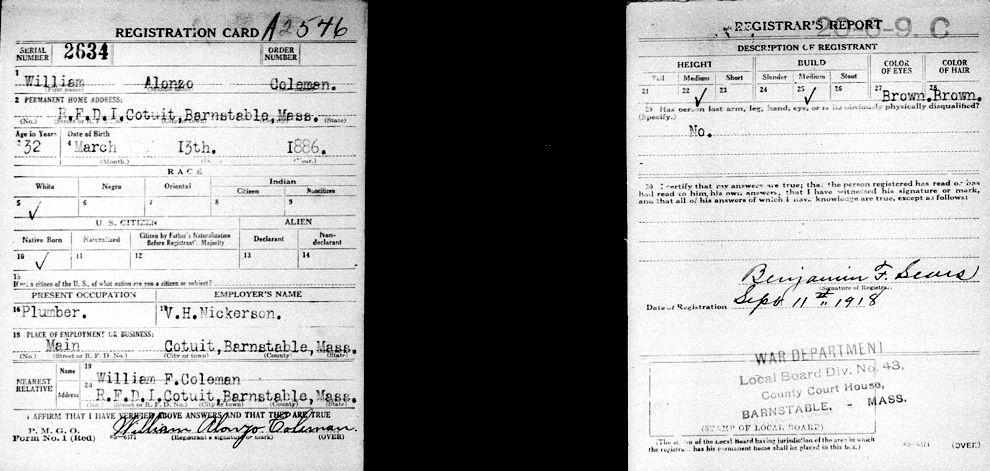 REGISTRATION CARD A2546
SERIAL NUMBER 2634 ORDER NUMBER
1 William Alonzo Coleman.
2 PERMANENT HOME ADDRESS:
R.F.D.I. Cotuit, Barnstable, Mass.
(No.) (Street or R. F. D. No.) (City or town) (County) (State)
Age in Years Date of Birth
3 32 4 March 13th. 1886.
(Month.) (Day.) (Year.)
RACE
White Negro Oriental Indian
Citizen Noncitizen
5 ✓ 6 7 8 9
U. S. CITIZEN ALIEN
Native Born Naturalized Citizen by Father's Naturalization Before Registrant's Majority Declarant Non-declarant
10 ✓ 11 12 13 14
15
If not a citizen of the U. S., of what nation are you a citizen or subject?
PRESENT OCCUPATION EMPLOYER'S NAME
16 Plumber. 17 V.H.Nickerson.
18 PLACE OF EMPLOYMENT OR BUSINESS:
Main Cotuit, Barnstable, Mass.
(No.) (Street or R. F. D. No.) (City or town) (County) (State)
NEAREST RELATIVE
Name 19 William F.Coleman
Address 20 R.F.D.I. Cotuit, Barnstable, Mass.
(No.) (Street or R. F. D. No.) (City or town) (County) (State)
I AFFIRM THAT I HAVE VERIFIED ABOVE ANSWERS AND THAT THEY ARE TRUE
P. M. G. O.
Form No. 1 (Red) 03—6171 William Alonzo Coleman.
(Registrant's signature or mark) (OVER)
REGISTRAR'S REPORT
C
DESCRIPTION OF REGISTRANT
HEIGHT BUILD COLOR OF EYES COLOR OF HAIR
Tall Medium Short Slender Medium Stout
21 22 ✓ 23 24 25 ✓ 26 27 Brown. 28 Brown.
29 Has person lost arm, leg, hand, eye, or is he obviously physically disqualified?
(Specify.)
No.
30 I certify that my answers are true; that the person registered has read or has
had read to him his own answers; that I have witnessed his signature or mark,
and that all of his answers of which I have knowledge are true, except as follows:
Benjamin F. Sears
(Signature of Registrar)
Date of Registration Sept 11th, 1918
WAR DEPARTMENT
Local Board Div. No. 43,
County Court House,
BARNSTABLE, - MASS.
(STAMP OF LOCAL BOARD)
(The stamp of the Local Board having jurisdiction of the area in which
the registrant has his permanent home shall be placed in this box.) 03—6171 (OVER)